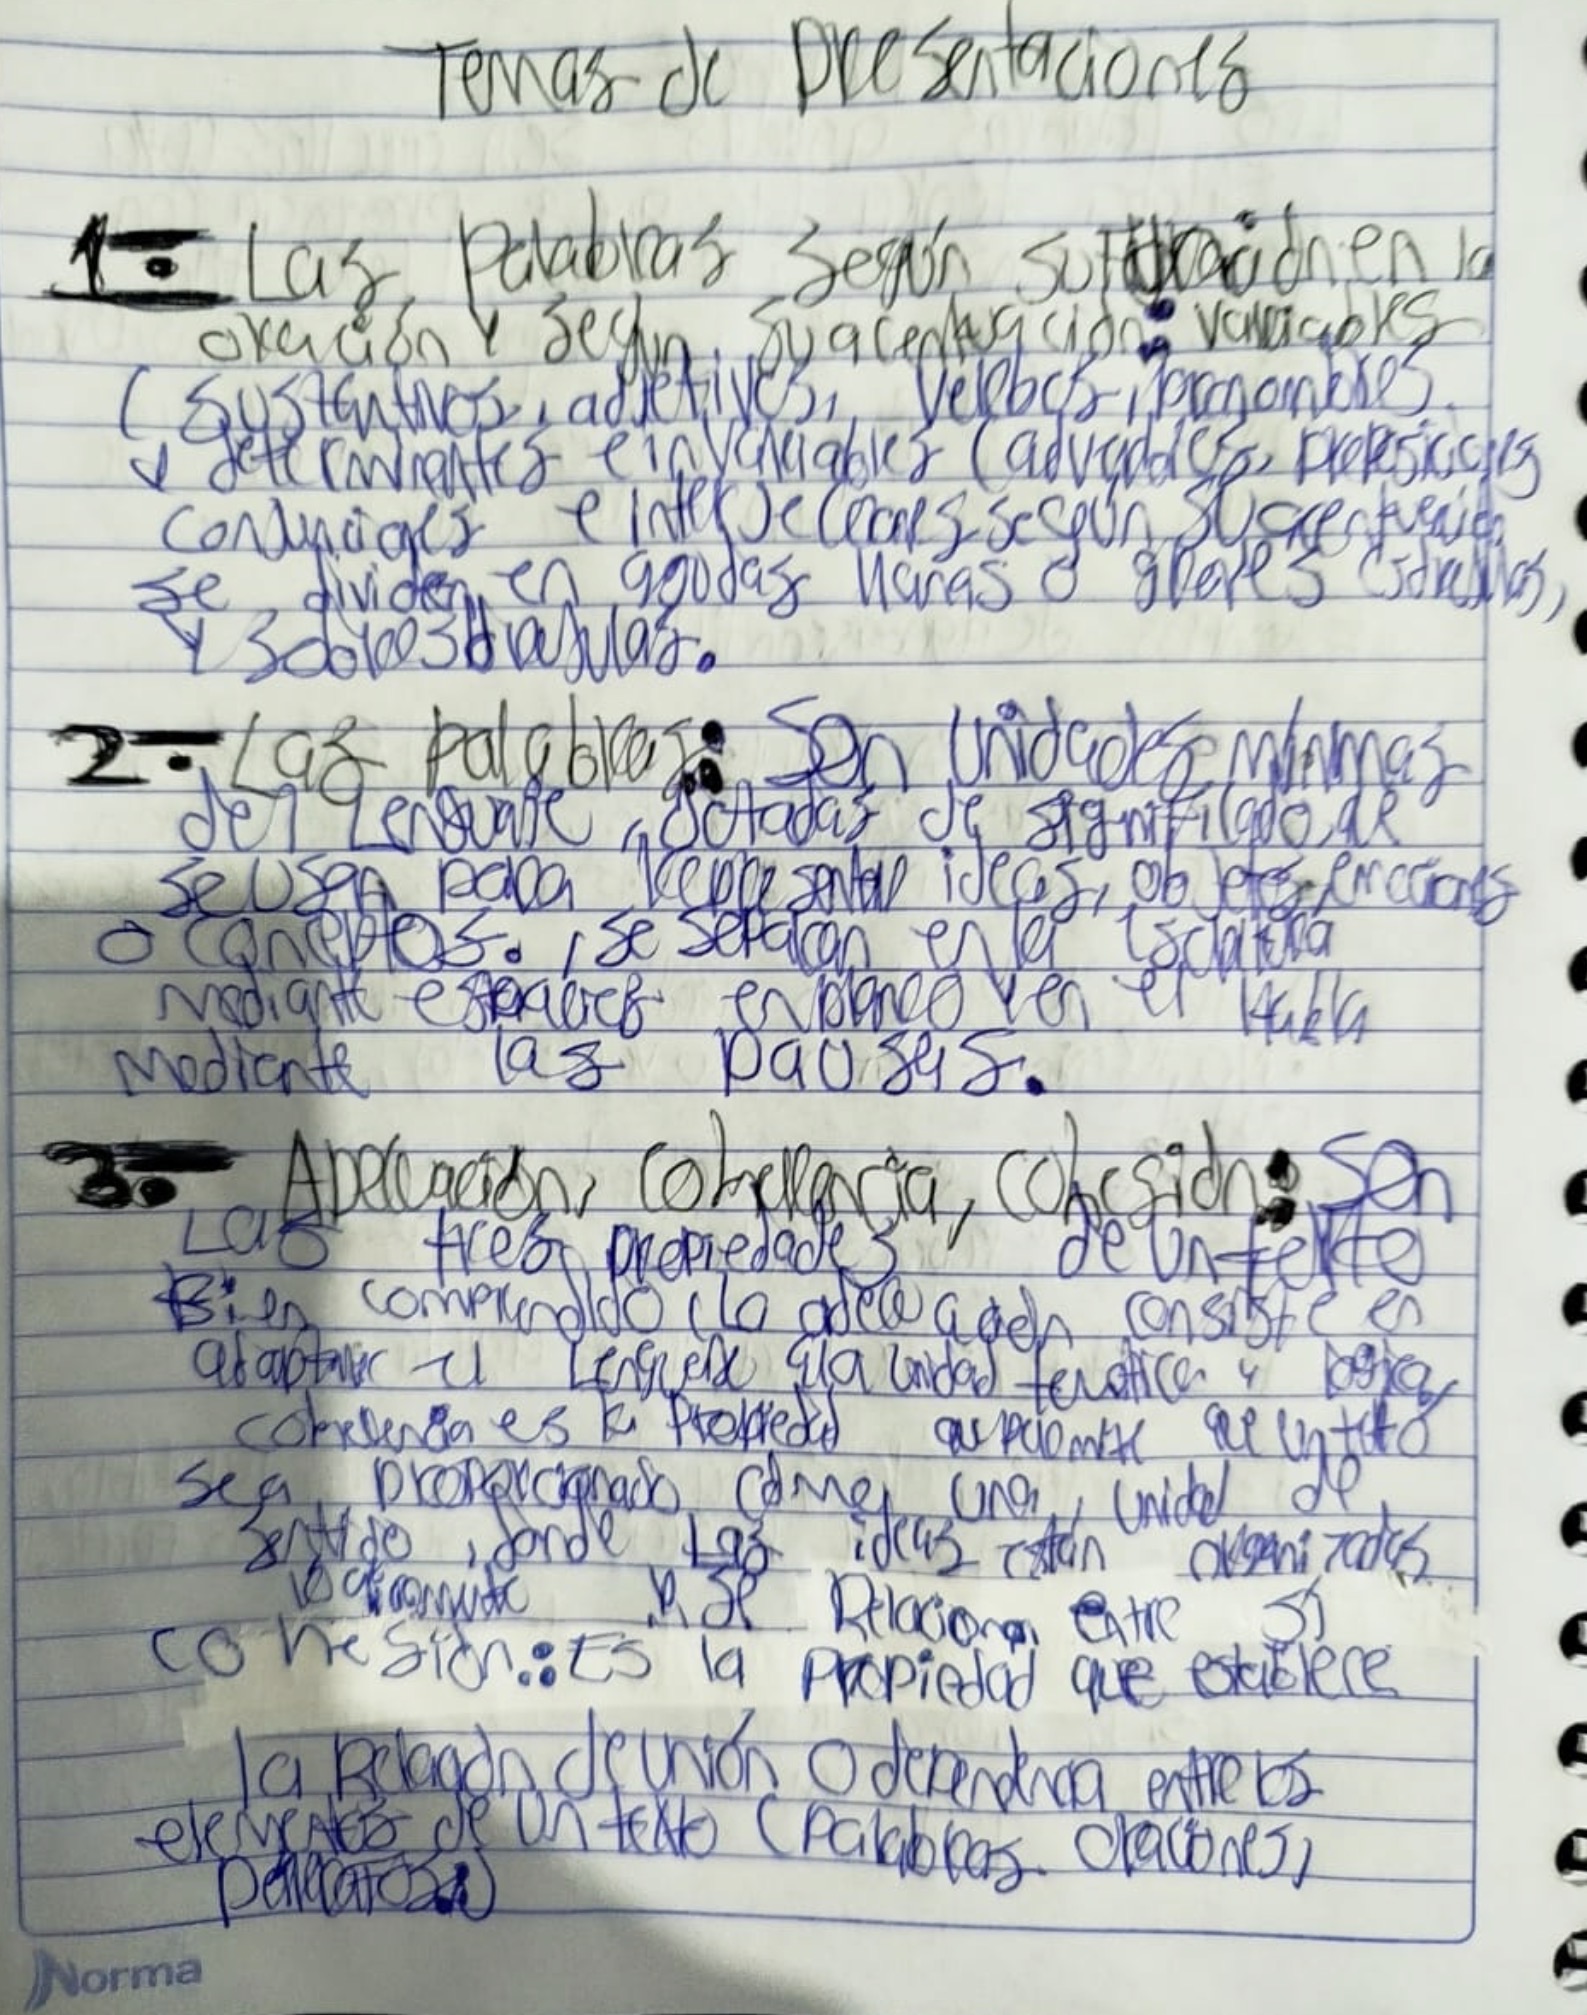 Temas de Presentaciones
1- Las palabras según su función en la
oración y según su acentuación: variables
(sustantivos, adjetivos, verbos, pronombres
y determinantes e invariables (adverbios, preposiciones
conjunciones e interjecciones según su acentuación
se dividen en agudas llanas o graves esdrújulas,
y sobresdrújulas.
2- Las palabras: Son unidades mínimas
del Lenguaje, dotadas de significado, que
se usan para representar ideas, objetos, emociones
o conceptos. , se separan en la escritura
mediante espacios en blanco y en el Habla
mediante las pausas.
3- Adecuación, coherencia, cohesión: Son
Las tres propiedades de un texto
Bien comprendido, La adecuación consiste en
adaptar el Lenguaje a la unidad temática y lógica,
coherencia es la Propiedad que permite que un texto
sea proporcionado como una, unidad de
sentido, donde Las ideas están organizadas
logicamente y se Relacionan entre sí
cohesión: Es la propiedad que establece
la Relación de unión o dependencia entre los
elementos de un texto (palabras. oraciones,
Norma